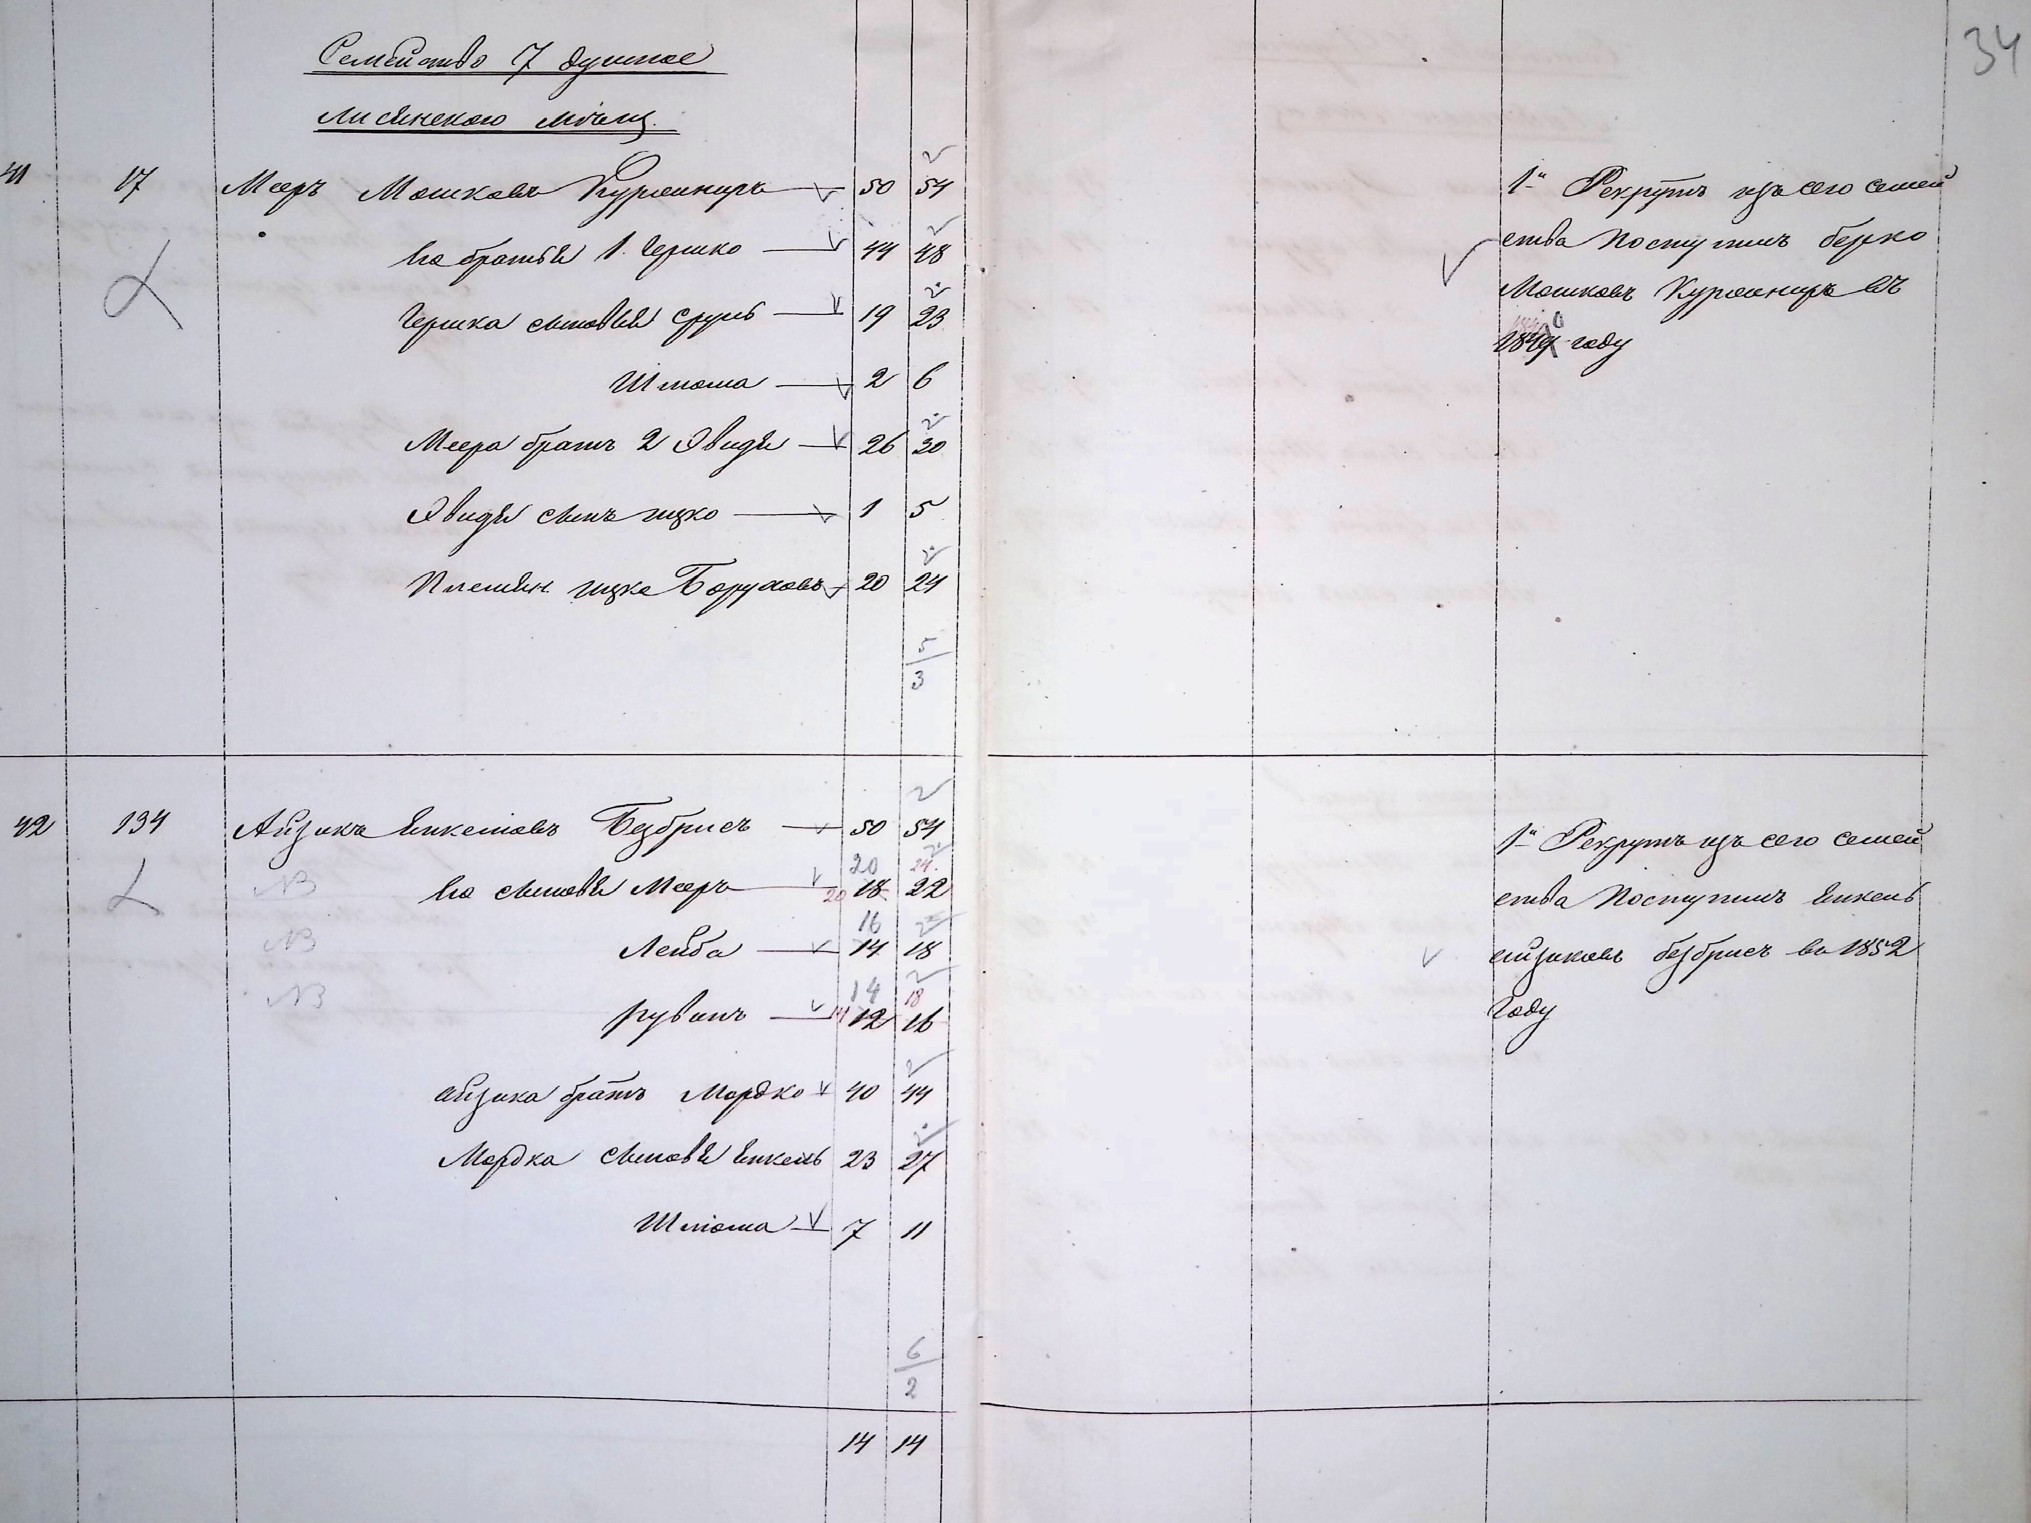 34
Семейство 7 душное
Лисянского мѣщ.
41 17 Мееръ Мошковъ Куроониръ 50 54
Его братья 1. Гершко 44 48
Гершка сыновья Сруль 19 23
Шлома 2 6
Меера братъ 2 Овидя 26 30
Овидя сынъ ицко 1 5
Племян. ицко Боруховъ 20 24
5
3
1й Рекрутъ изъ сего семей
ства Поступилъ берко
Мошковъ Куроониръ въ
году
42 134 Айзикъ Янкелювъ Безбрисъ 50 54
20 24
NB Его сыновья Мееръ 20 18 22
16
NB Лейба 14 18
14 18
NB рувинъ 14 12 16
айзика братъ Мордко 40 44
Мордка сыновья Янкель 23 27
Шлома 7 11
6
2
1й Рекрутъ изъ сего семей
ства Поступилъ Янкель
айзиковъ безбрисъ въ 1852
году
14 14